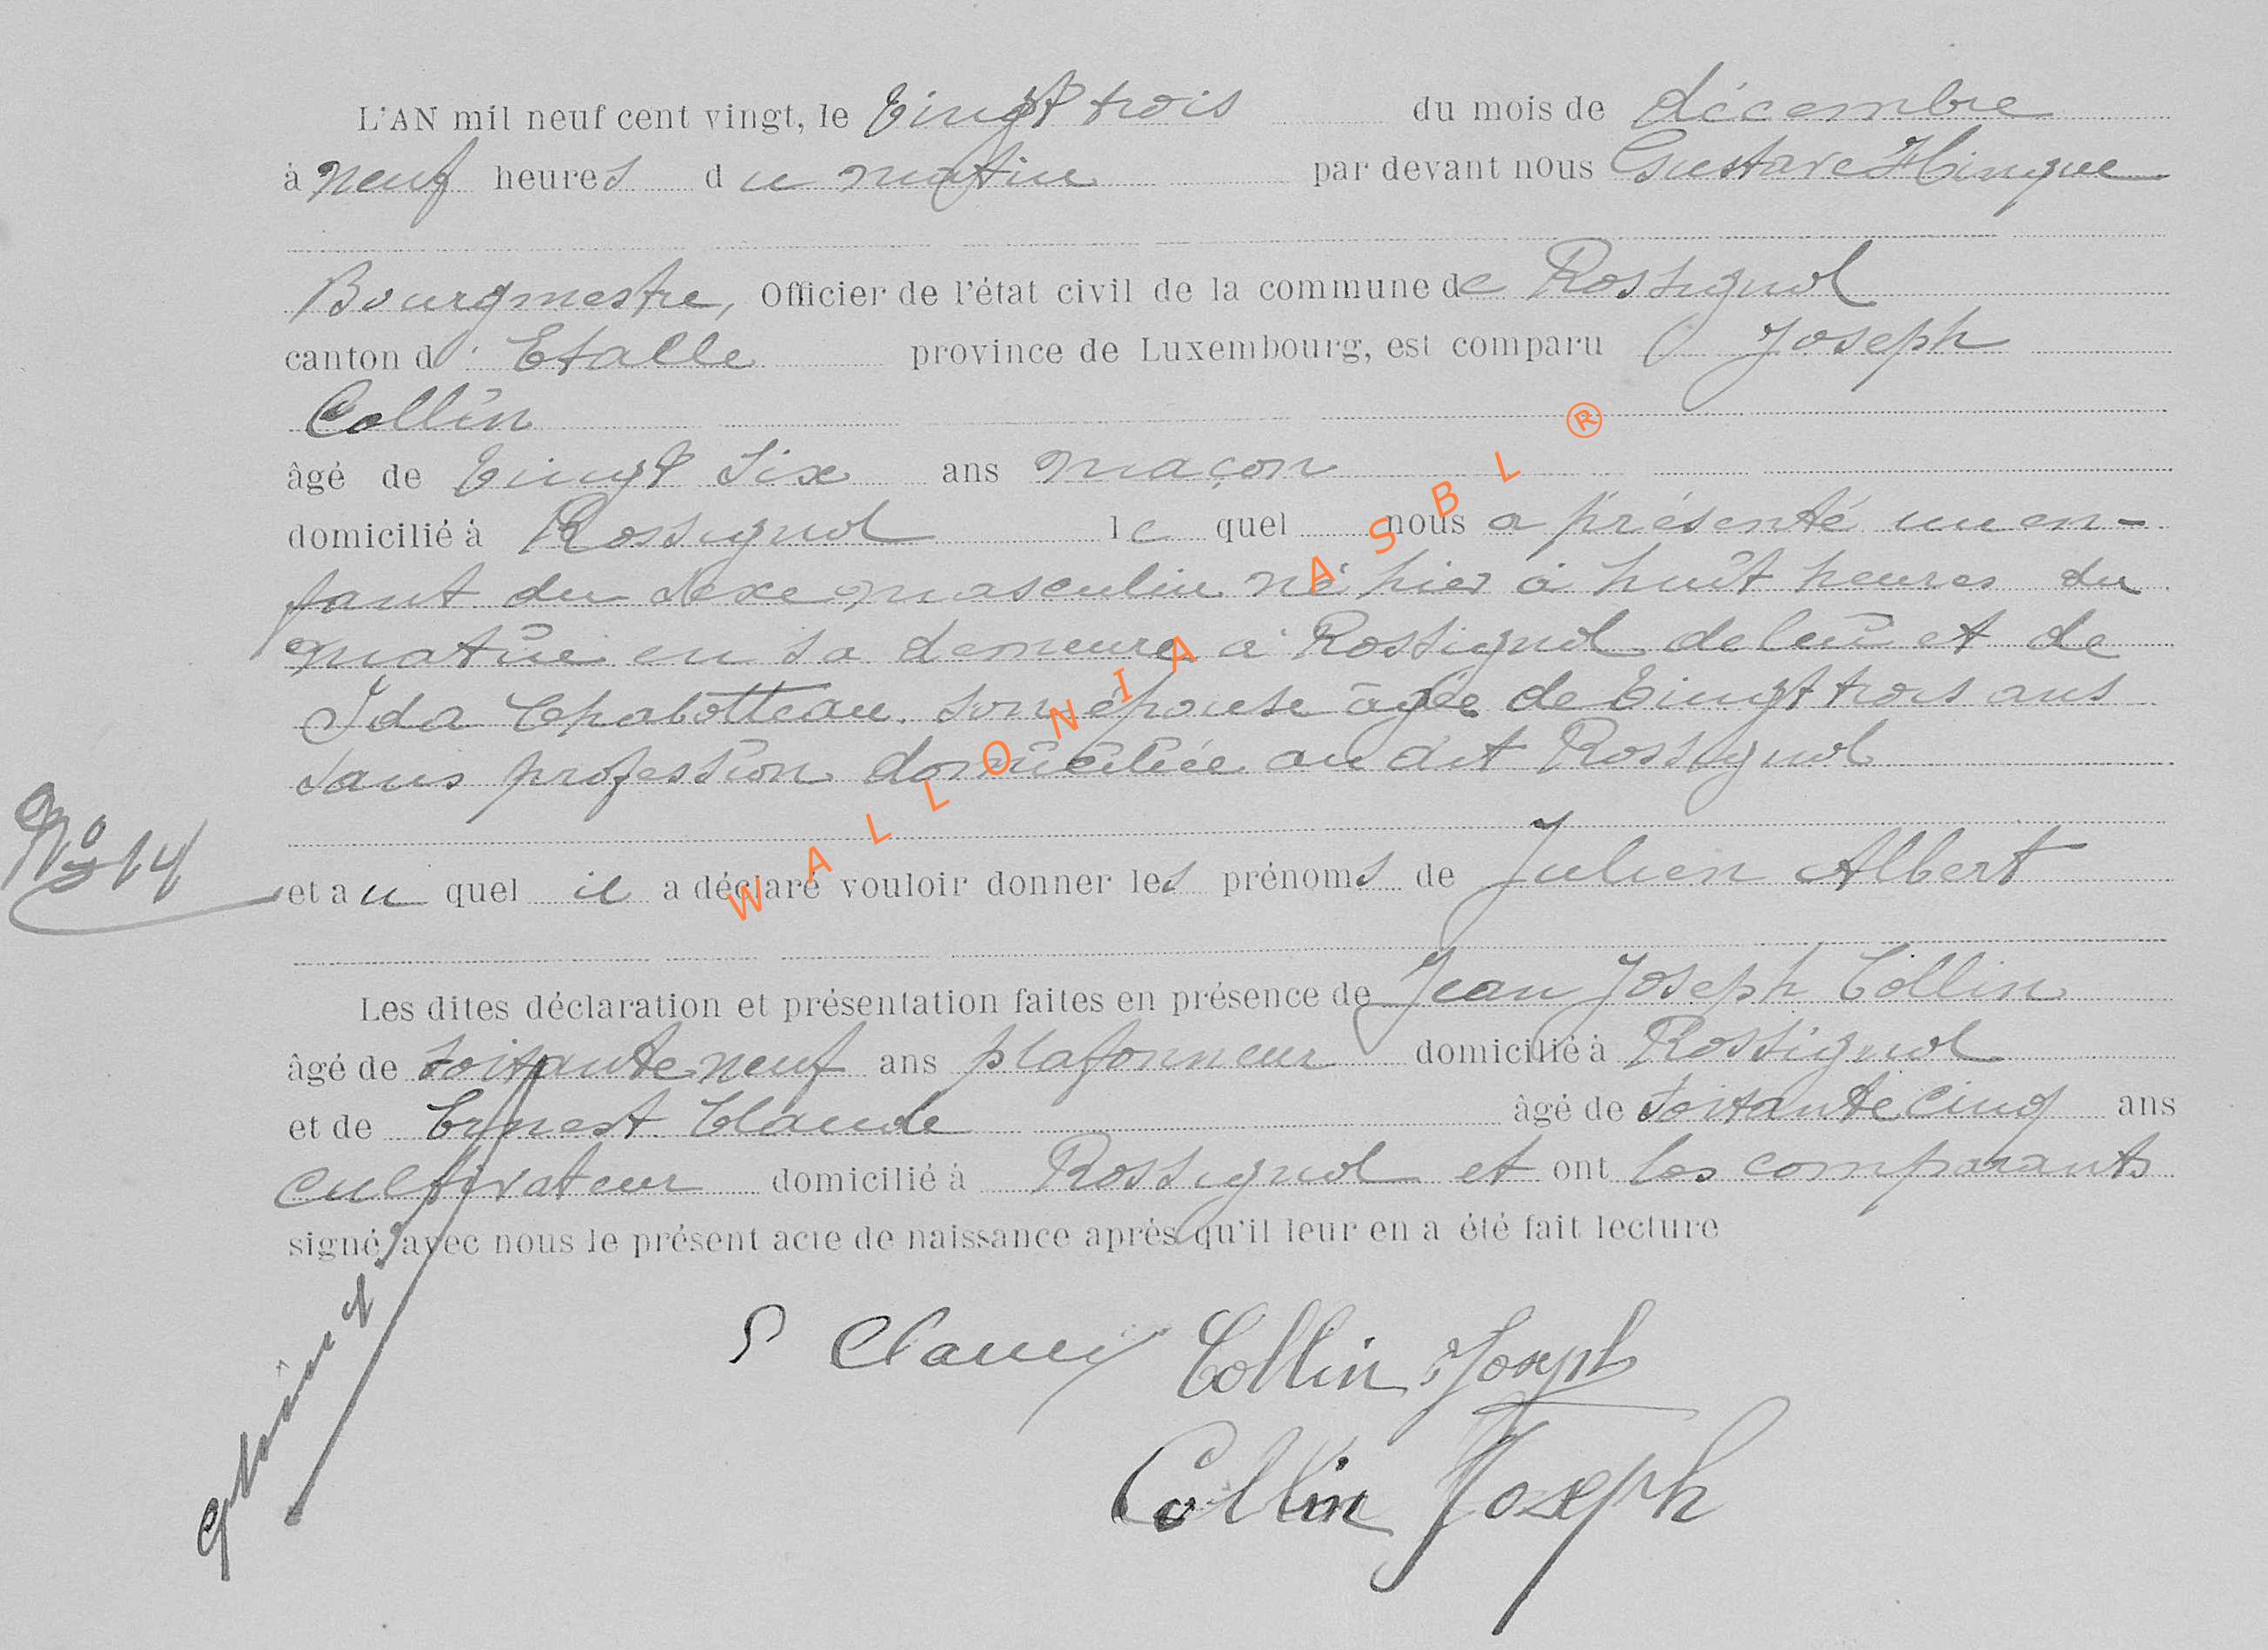 L'AN mil neuf cent vingt, le vingt trois du mois de décembre
à neuf heures du matin par devant nous Gustave Hinque
Bourgmestre, Officier de l'état civil de la commune de Rossignol
canton d' Etalle province de Luxembourg, est comparu Joseph
Collin
âgé de vingt six ans maçon
domicilié à Rossignol lequel nous a présenté un en-
fant du sexe masculin né hier à huit heures du
matin en sa demeure à Rossignol de lui et de
Ida Chabotteau son épouse âgée de vingt trois ans
sans profession domiciliée au dit Rossignol
No 14
et au quel il a déclaré vouloir donner les prénoms de Julien Albert
Les dites déclaration et présentation faites en présence de Jean Joseph Collin
âgé de soixante neuf ans plafonneur domicilié à Rossignol
et de Ernest Claude âgé de soixante cinq ans
cultivateur domicilié à Rossignol et ont les comparants
signé avec nous le présent acte de naissance après qu'il leur en a été fait lecture
Collin Joseph
Collin Joseph
WALLONIA ASBL ®